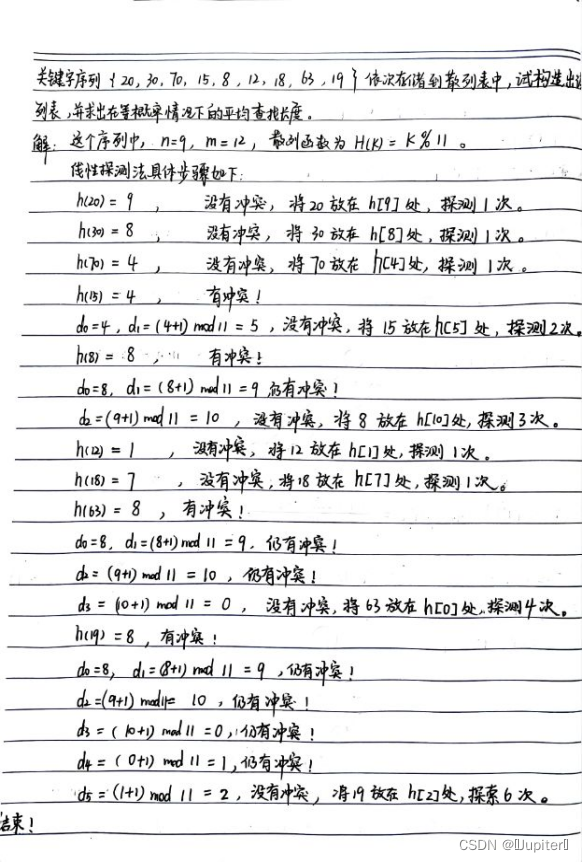 关键字序列{20,30,70,15,8,12,18,63,19}依次存储到散列表中,试构造出
列表,并求出在等概率情况下的平均查找长度。
解:这个序列中,n=9,m=12,散列函数为H(K)=K%11。
线性探测法具体步骤如下:
h(20)=9,没有冲突,将20放在h[9]处,探测1次。
h(30)=8,没有冲突,将30放在h[8]处,探测1次。
h(70)=4,没有冲突,将70放在h[4]处,探测1次。
h(15)=4,有冲突!
d0=4,d1=(4+1)mod11=5,没有冲突,将15放在h[5]处,探测2次。
h(8)=8,有冲突!
d0=8,d1=(8+1)mod11=9仍有冲突!
d2=(9+1)mod11=10,没有冲突,将8放在h[10]处,探测3次。
h(12)=1,没有冲突,将12放在h[1]处,探测1次。
h(18)=7,没有冲突,将18放在h[7]处,探测1次。
h(63)=8,有冲突!
d0=8,d1=(8+1)mod11=9,仍有冲突!
d2=(9+1)mod11=10,仍有冲突!
d3=(10+1)mod11=0,没有冲突,将63放在h[0]处,探测4次。
h(19)=8,有冲突!
d0=8,d1=(8+1)mod11=9,仍有冲突!
d2=(9+1)mod11=10,仍有冲突!
d3=(10+1)mod11=0,仍有冲突!
d4=(0+1)mod11=1,仍有冲突!
d5=(1+1)mod11=2,没有冲突,将19放在h[2]处,探索6次。
结束!
CSDN @Jupiter